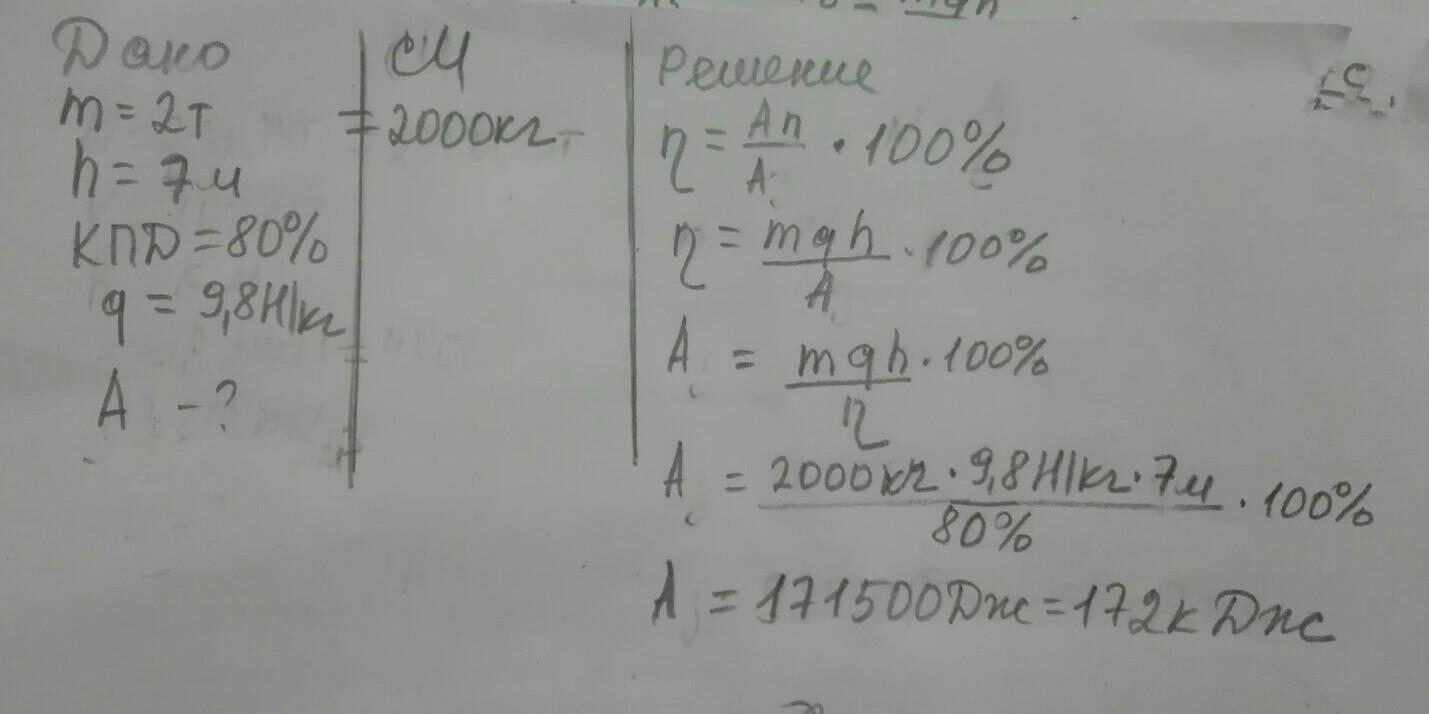 Дано
m = 2т
h = 7м
КПД = 80%
g = 9,8Н/кг
A - ?
СИ
= 2000кг
Решение
η = Aп/A · 100%
η = mgh/A · 100%
A = mgh/η · 100%
A = 2000кг · 9,8Н/кг · 7м/80% · 100%
A = 171500Дж = 172кДж